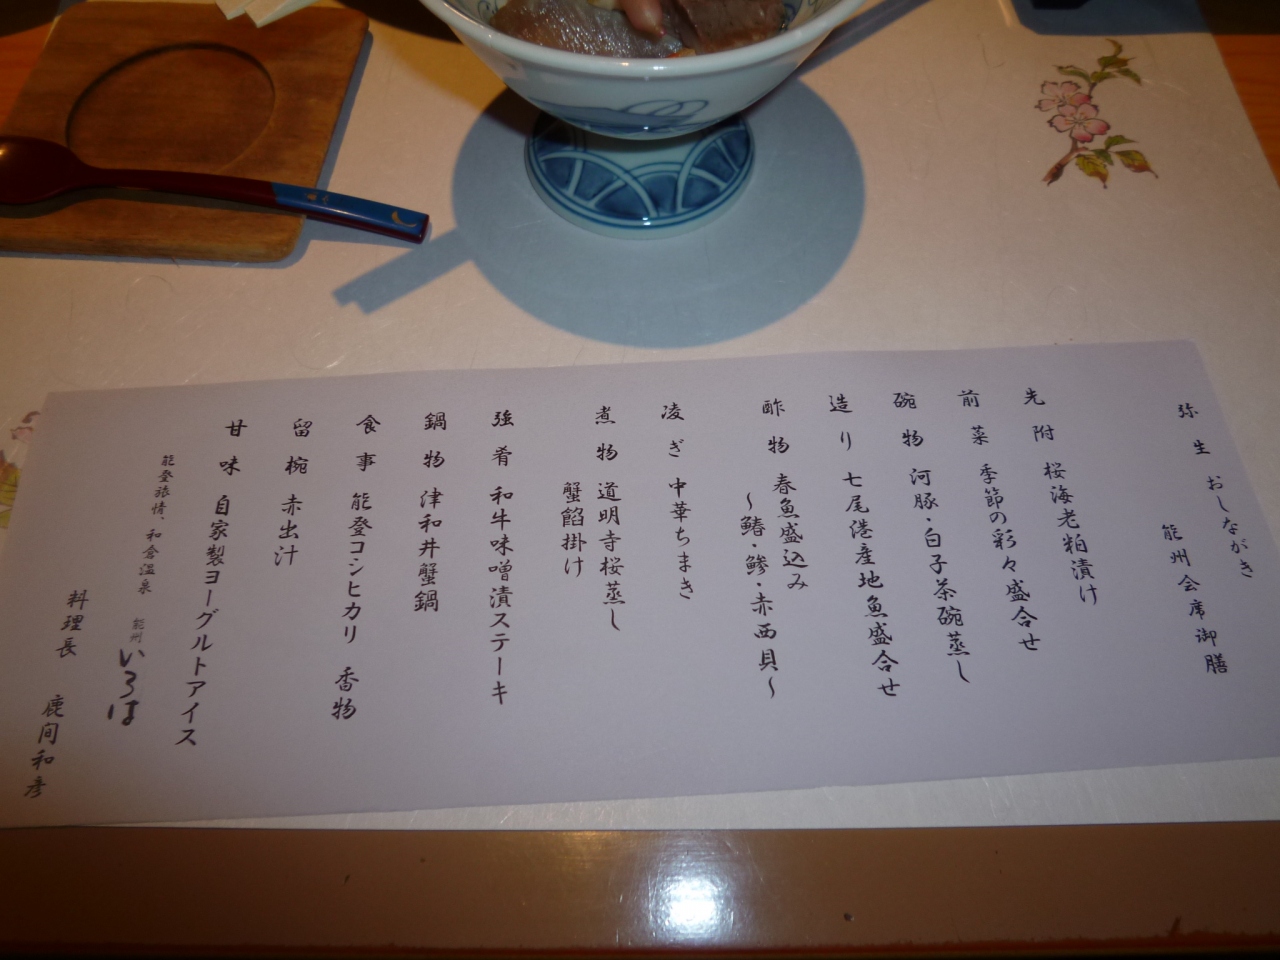 弥生 おしながき
能州会席御膳
先附 桜海老粕漬け
前菜 季節の彩々盛合せ
碗物 河豚・白子茶碗蒸し
造り 七尾港産地魚盛合せ
酢物 春魚盛込み
～鰆・鯵・赤西貝～
凌ぎ 中華ちまき
煮物 道明寺桜蒸し
蟹餡掛け
強肴 和牛味噌漬ステーキ
鍋物 津和井蟹鍋
食事 能登コシヒカリ 香物
留椀 赤出汁
甘味 自家製ヨーグルトアイス
能登旅情、和倉温泉 能州 いろは
料理長 鹿間和彦